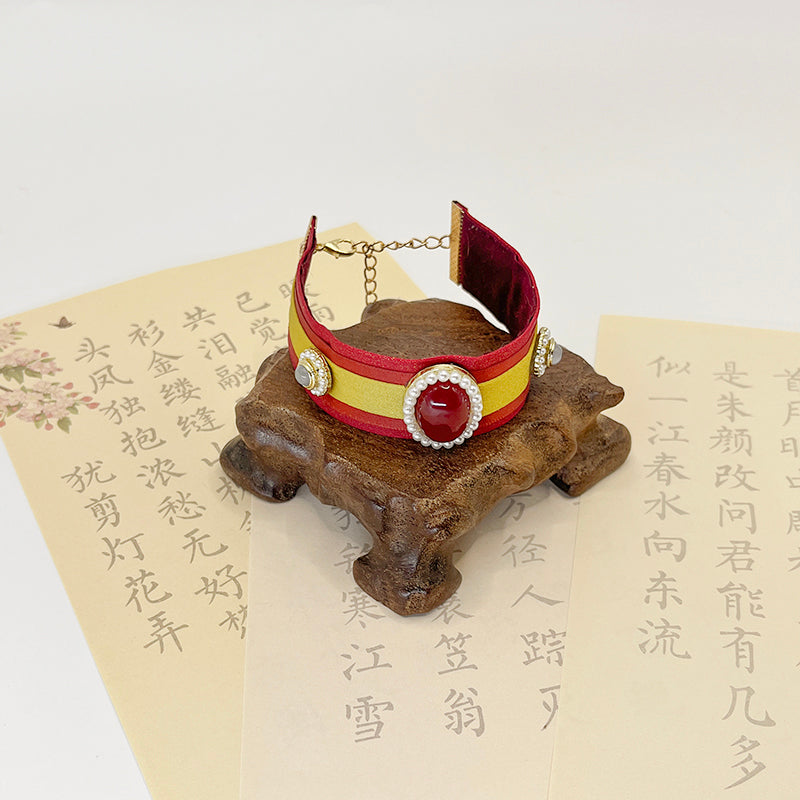 眼雨
已觉
共泪融
衫金缕缝山枕
头凤独抱浓愁无好梦
犹剪灯花弄
径人踪灭
蓑笠翁
寒江雪
首月明中
是朱颜改问君能有几多
似一江春水向东流